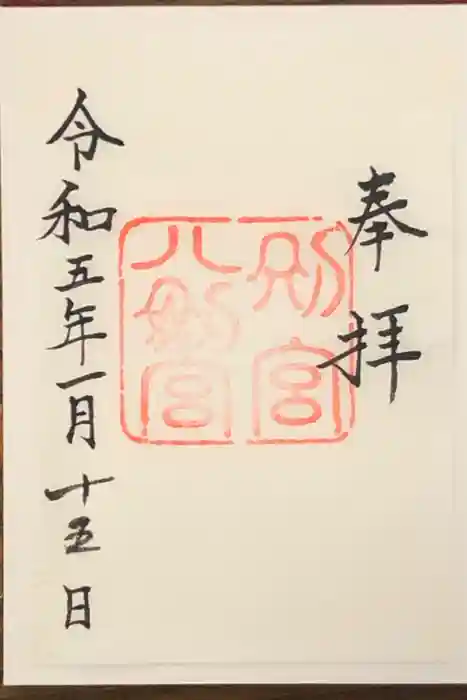 奉拝
別宮
八剣宮
令和五年一月十五日